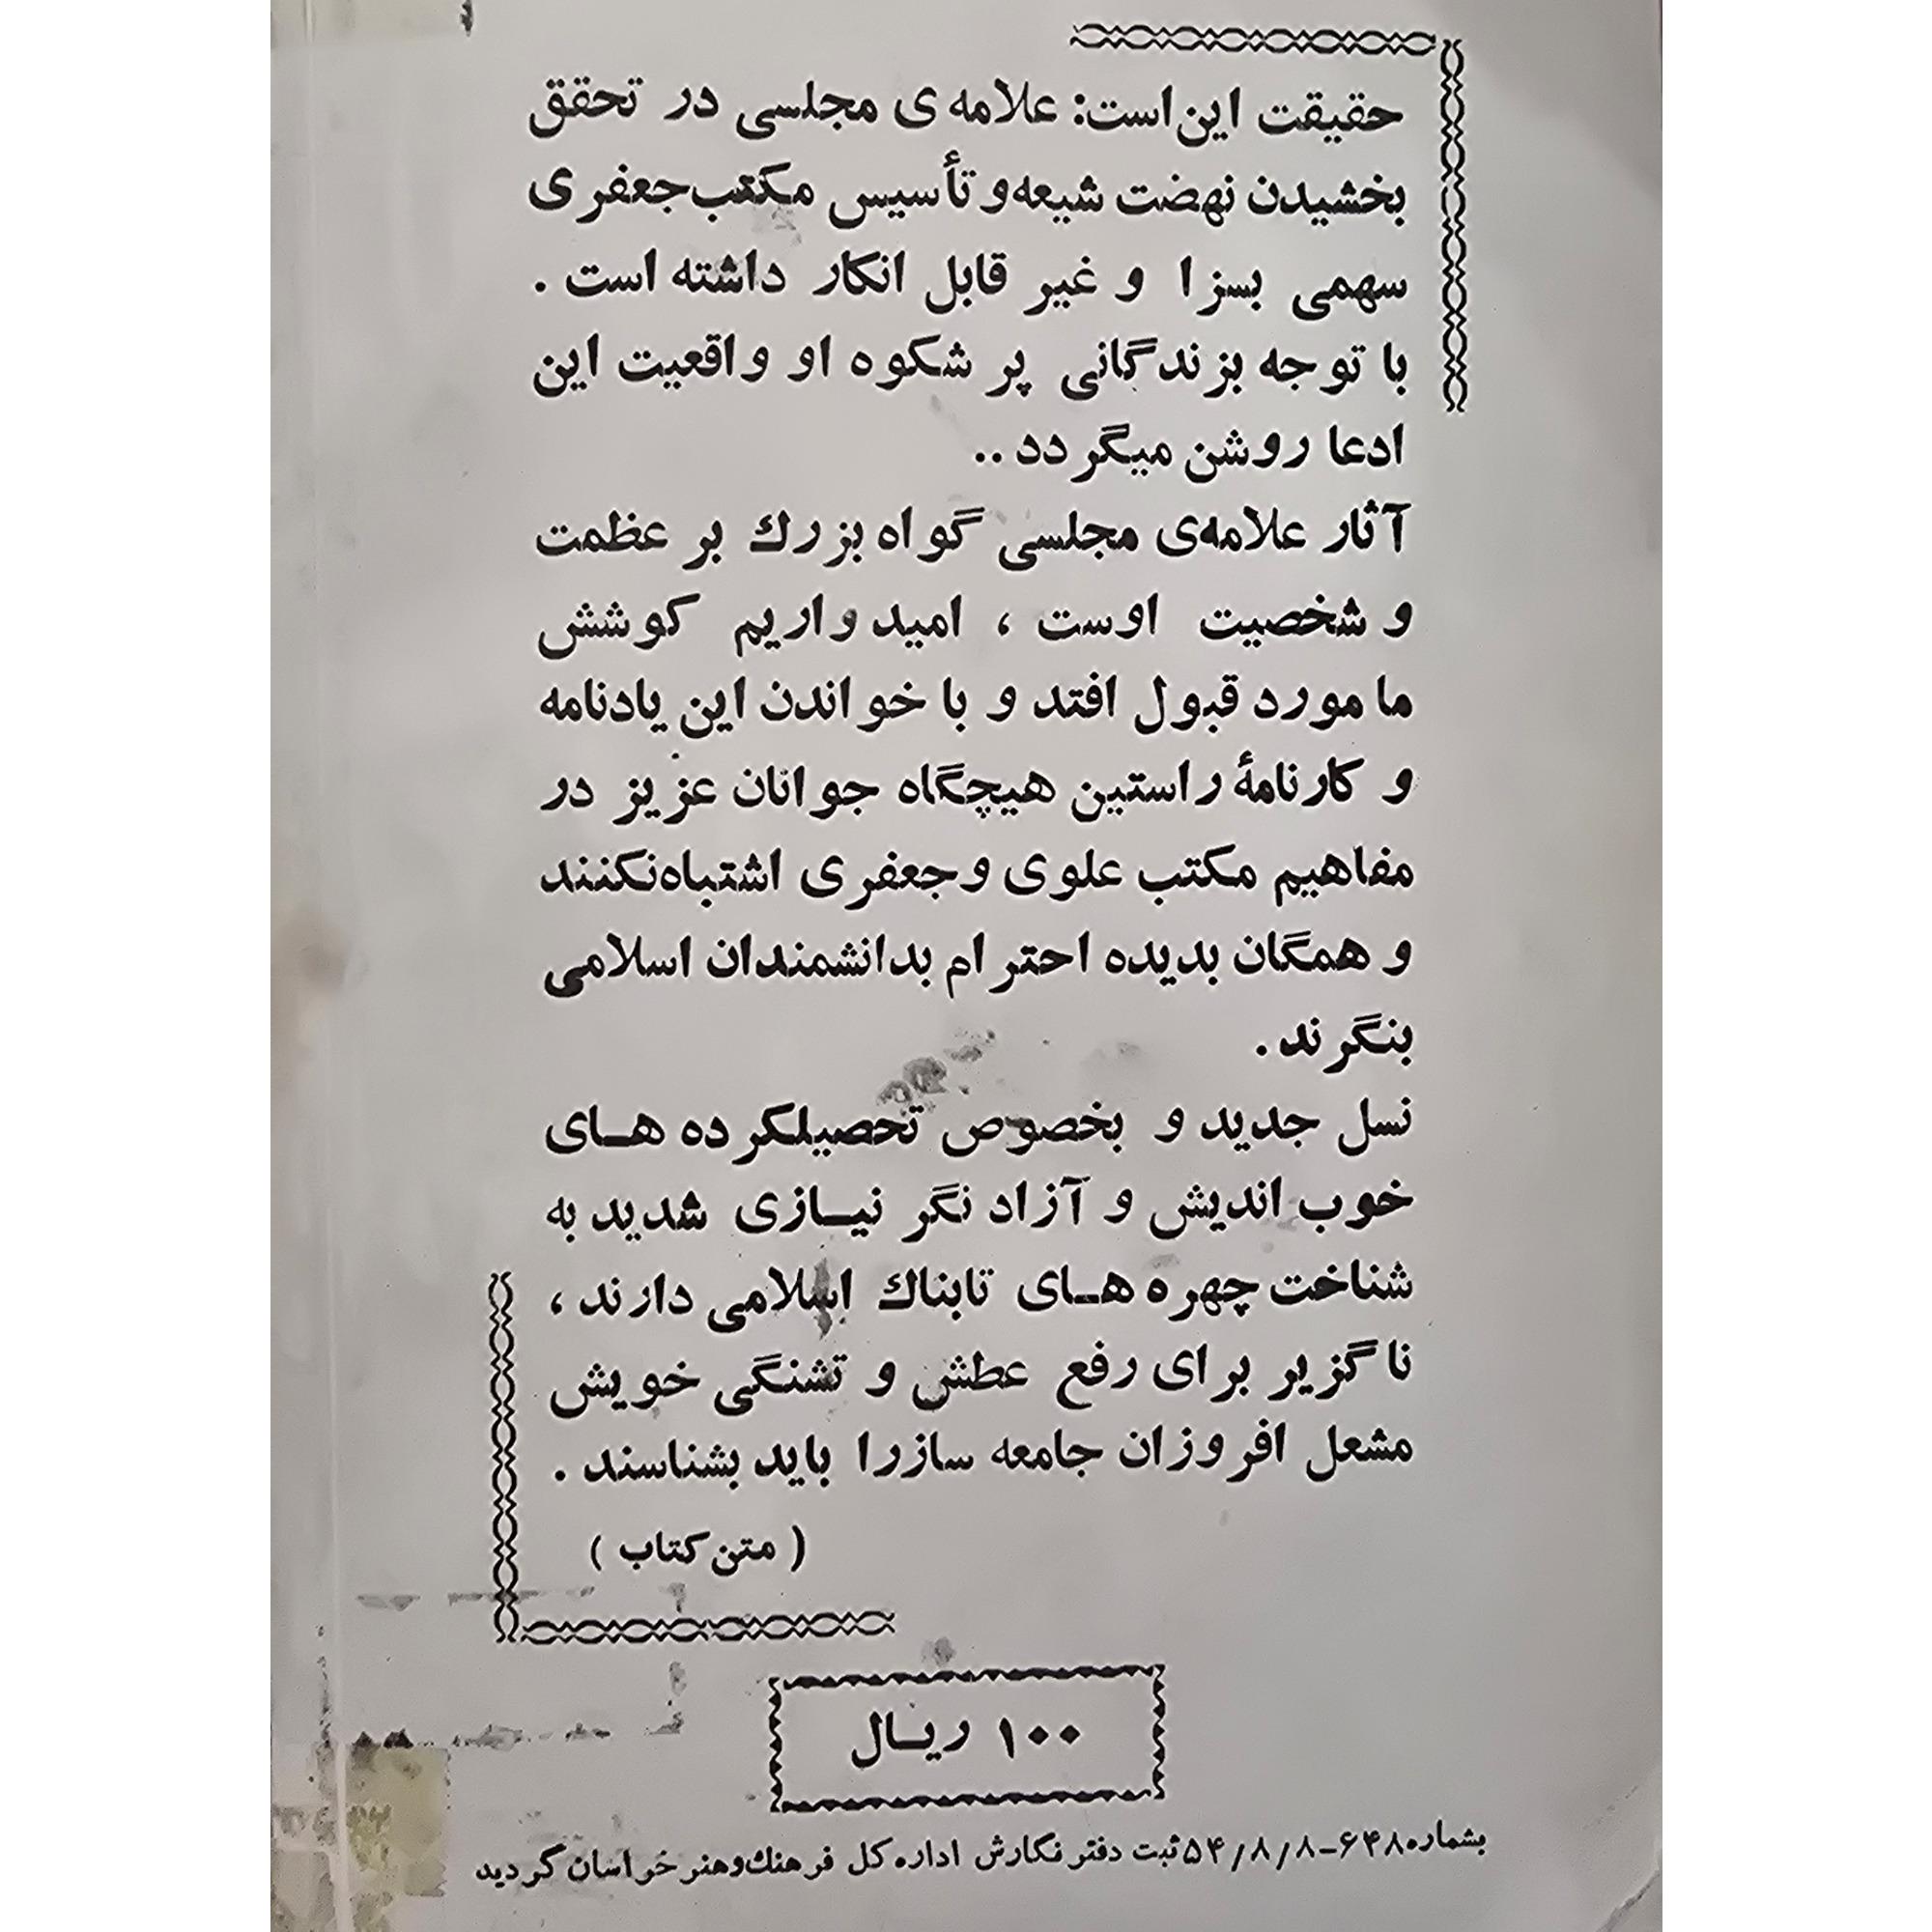 حقیقت این است: علامه ی مجلسی در تحقق
بخشیدن نهضت شیعه و تأسیس مکتب جعفری
سهمی بسزا و غیر قابل انکار داشته است .
با توجه بزندگانی پر شکوه او واقعیت این
ادعا روشن میگردد ..
آثار علامه‌ی مجلسی گواه بزرك بر عظمت
و شخصیت اوست ، امیدواریم کوشش
ما مورد قبول افتد و با خواندن این یادنامه
و کارنامهٔ راستین هیچگاه جوانان عزیز در
مفاهیم مکتب علوی و جعفری اشتباه نکنند
و همگان بدیده احترام بدانشمندان اسلامی
بنگرند .
نسل جدید و بخصوص تحصیلکرده هـای
خوب اندیش و آزاد نگر نیـازی شدید به
شناخت چهره هـای تابناك اسلامی دارند ،
ناگزیر برای رفع عطش و تشنگی خویش
مشعل افروزان جامعه ساز را باید بشناسند .
( متن کتاب )
۱۰۰ ریـال
بشماره ۶۴۸-۵۴/۸/۸ ثبت دفتر نگارش اداره کل فرهنك و هنر خراسان گردید